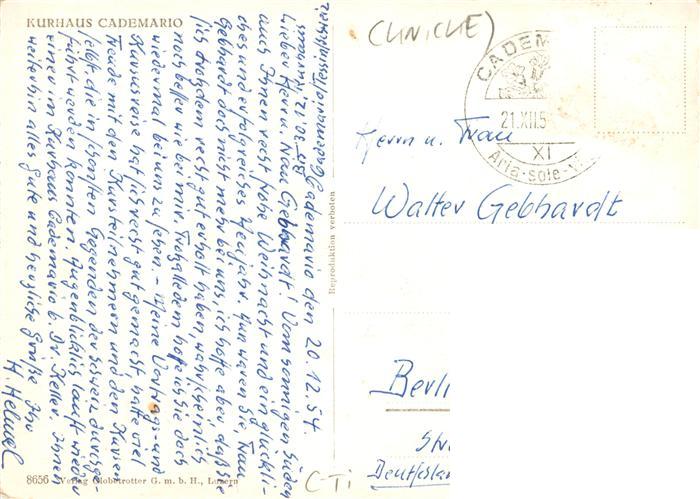 KURHAUS CADEMARIO
Cademario den 20.12.54.
Lieber Herr u. Frau Gebhardt! Vom sonnigen Süden
auch Ihnen recht frohe Weihnacht und ein glückli-
ches und erfolgreiches Neujahr. Nun waren Sie, Frau
Gebhardt doch nicht mehr bei uns, ich hoffe aber, daß Sie
sich trotzdem recht gut erholt haben, wahrscheinlich
noch besser wie bei mir. Trotzalledem hoffe ich Sie doch
wiedermal bei uns zu sehen. - Meine Vortrags- und
Kursusreise hat sich recht gut gemacht, hatte viel
Freude mit den Kursteilnehmern und den Kursen
selbst, die in schönsten Gegenden der Schweiz durchge-
führt werden konnten. Augenblicklich läuft wieder
einer im Kurhaus Cademario b. Dr. Keller. Ihnen
weiterhin alles Gute und herzliche Grüße Ihr
8656 Verlag Globetrotter G. m. b. H., Luzern
Reproduktion verboten
(CLINICHE)
CADEM
21.XII.5
XI
Aria-sole-
Herrn u. Frau
Walter Gebhardt
Berli
Str
Deutschlan
CTi